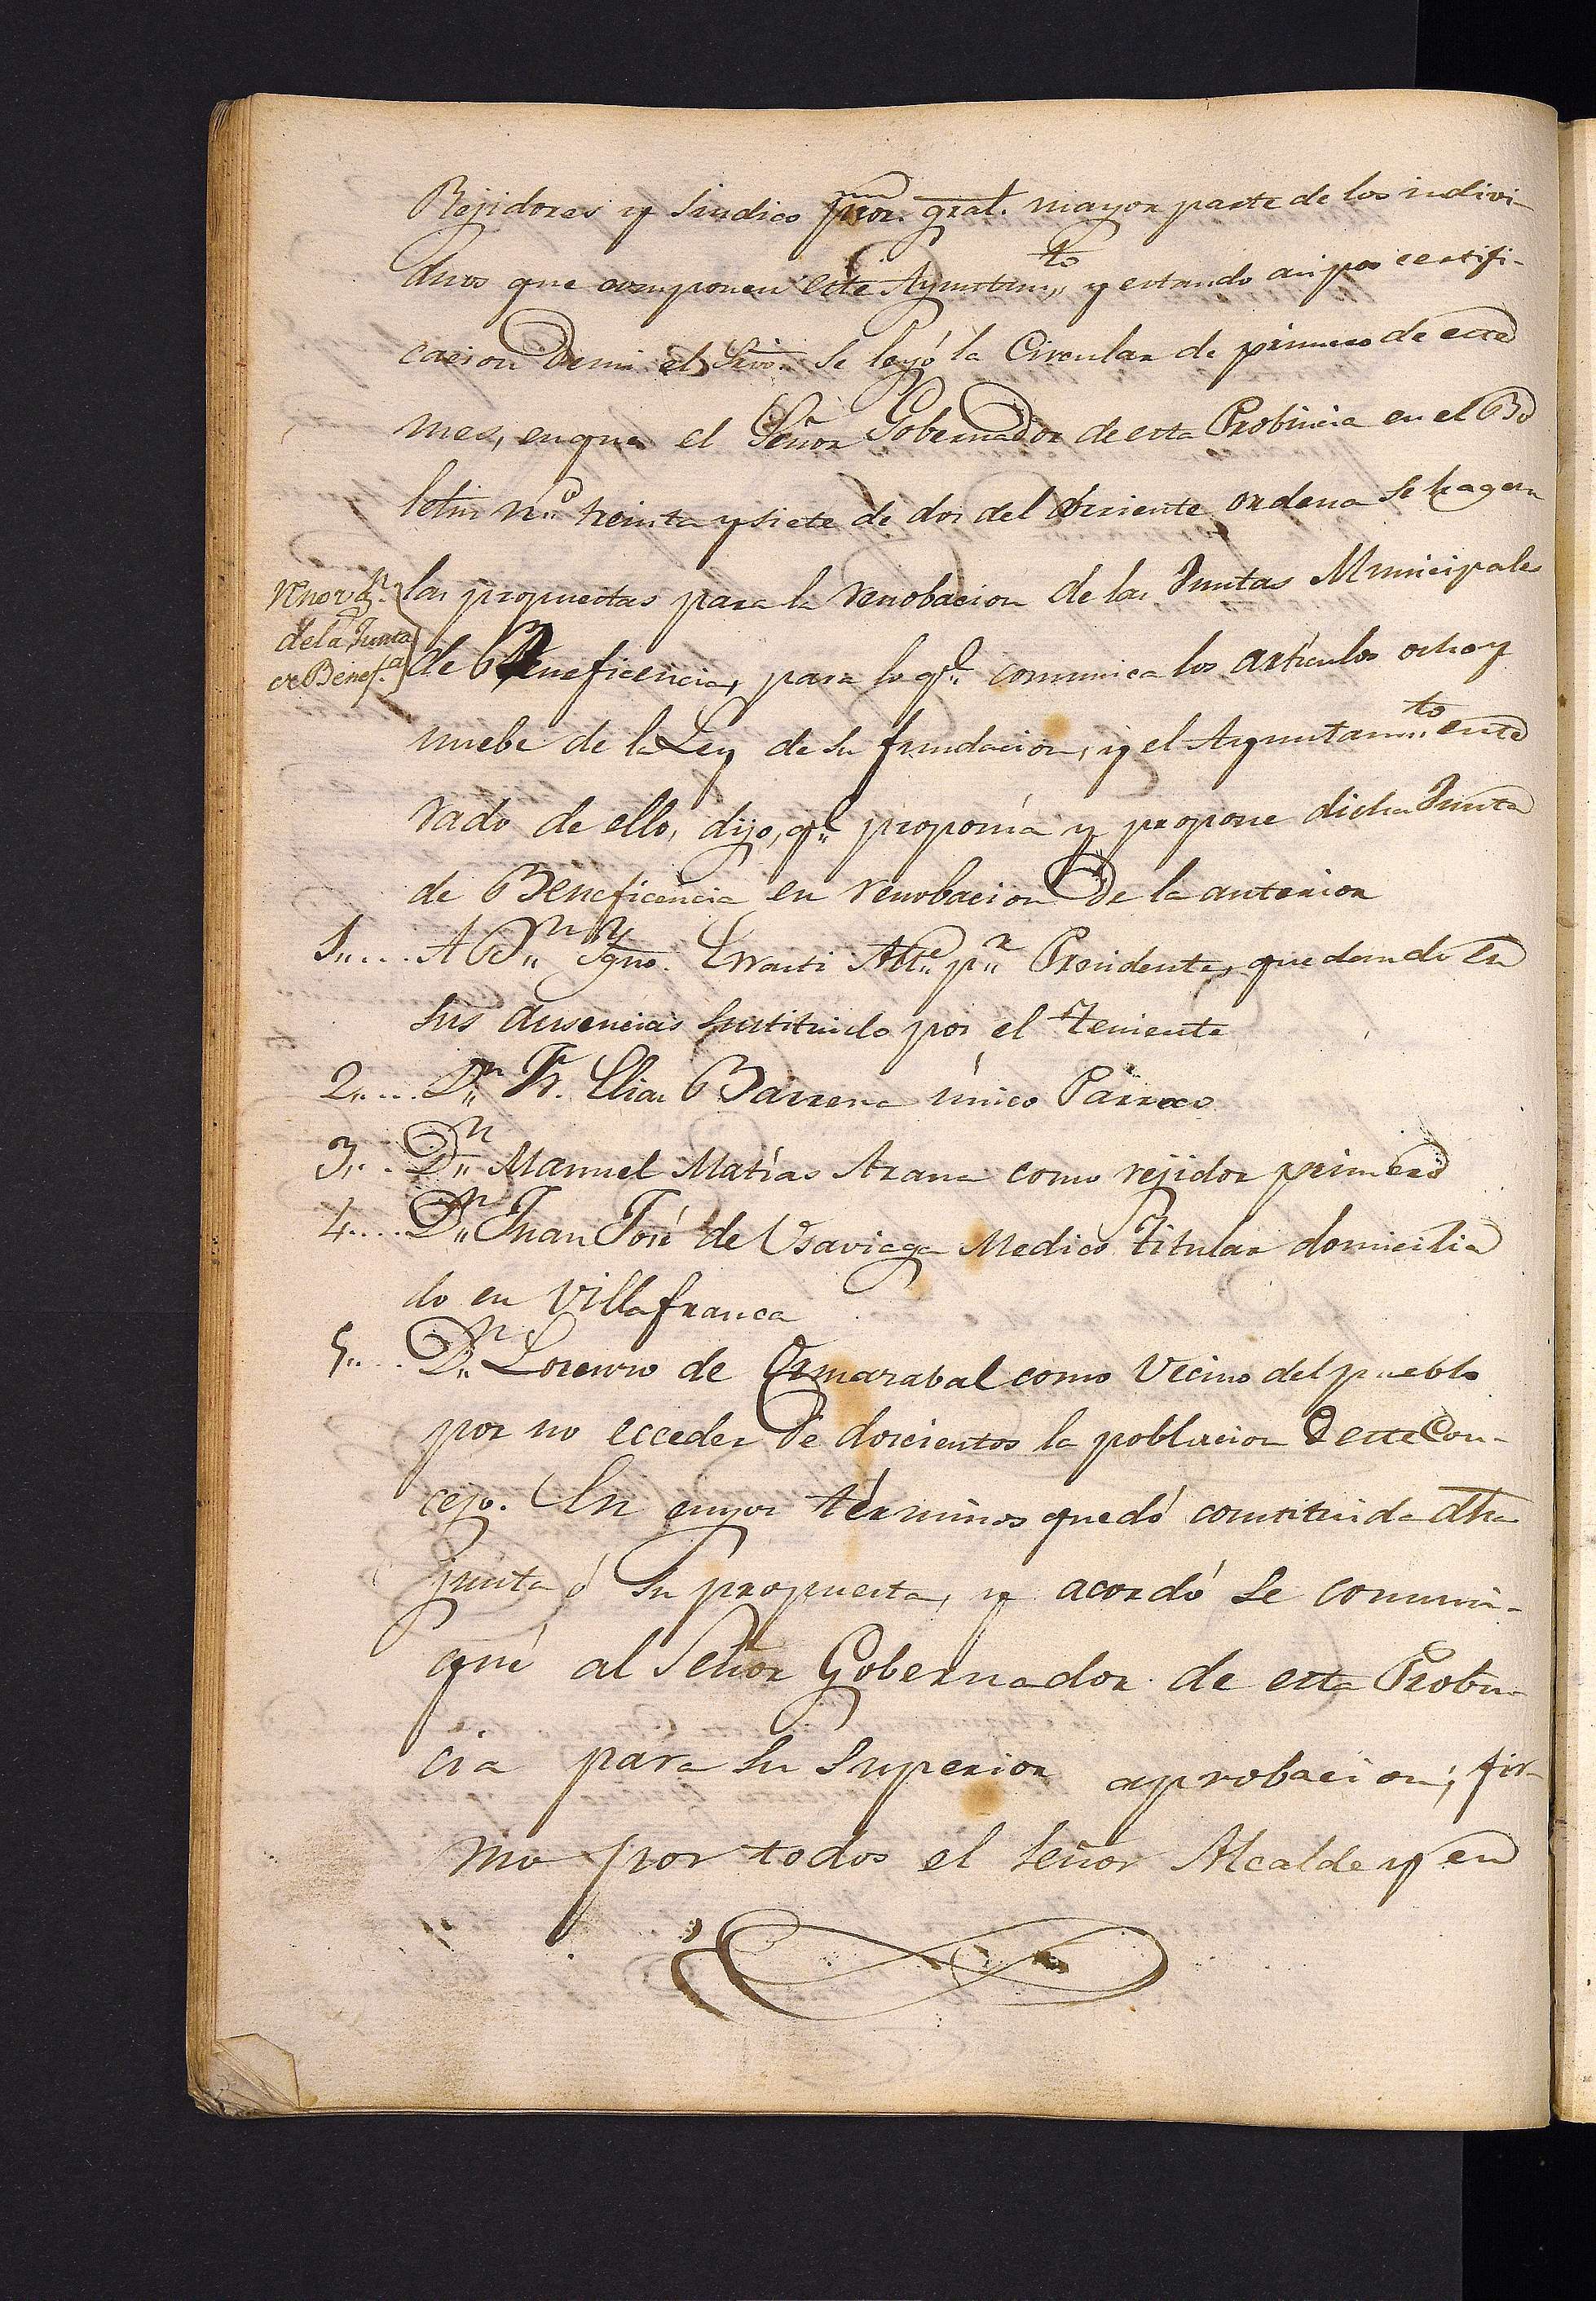 Rejidores y Sindico pror. gral. mayor parte de los indivi-
duos que componen este Ayuntamto y estando asi por certifi-
cacion de mi el Srio. se leyó la Circular de primero de este
mes, en que el Señor Gobernador de esta Probincia en el Bo
letin no. treinta y siete de dos del corriente ordena se hagan
las propuestas para la renobacion de las Juntas Municipales
Renovon.
de la Junta
de Benefa.
de Beneficencia, para lo ql. comunica los artículos ocho y
nuebe de la Ley de su fundacion, y el Ayuntamto. ente
rado de ello, dijo, qe. proponía y propone dicha Junta
de Beneficencia en renobacion de la anterior
1.... A Dn. Ygno. Alte. pr. Presidente, quedando en
sus ausencias sustituido por el Teniente
2.... Dn. Fr. Elias Barrena único Párroco
3... Dn. Manuel Matías Arana como rejidor primero
4.... Dn. Juan José de Usaviaga Medico titular domicilia
do en Villafranca
5... Dn. Lorenzo de Ormazabal como Vecino del pueblo
por no ecceder de doscientos la poblacion de este Con-
cejo. En cuyos términos quedó constituida dha
junta ó su propuesta, y acordó se comuni-
qué al Señor Gobernador de esta Probin
cia para su superior aprobacion; fir-
mo por todos el Señor Alcalde y en